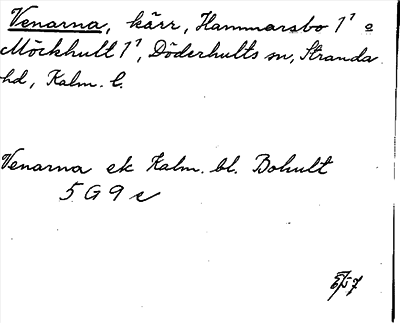 Venarna, kärr, Hammarsbo 1¹ o
Möckhult 1¹, Döderhults sn, Stranda
hd, Kalm. l.
Venarna ek Kalm. bl. Bohult
5 G 9 e